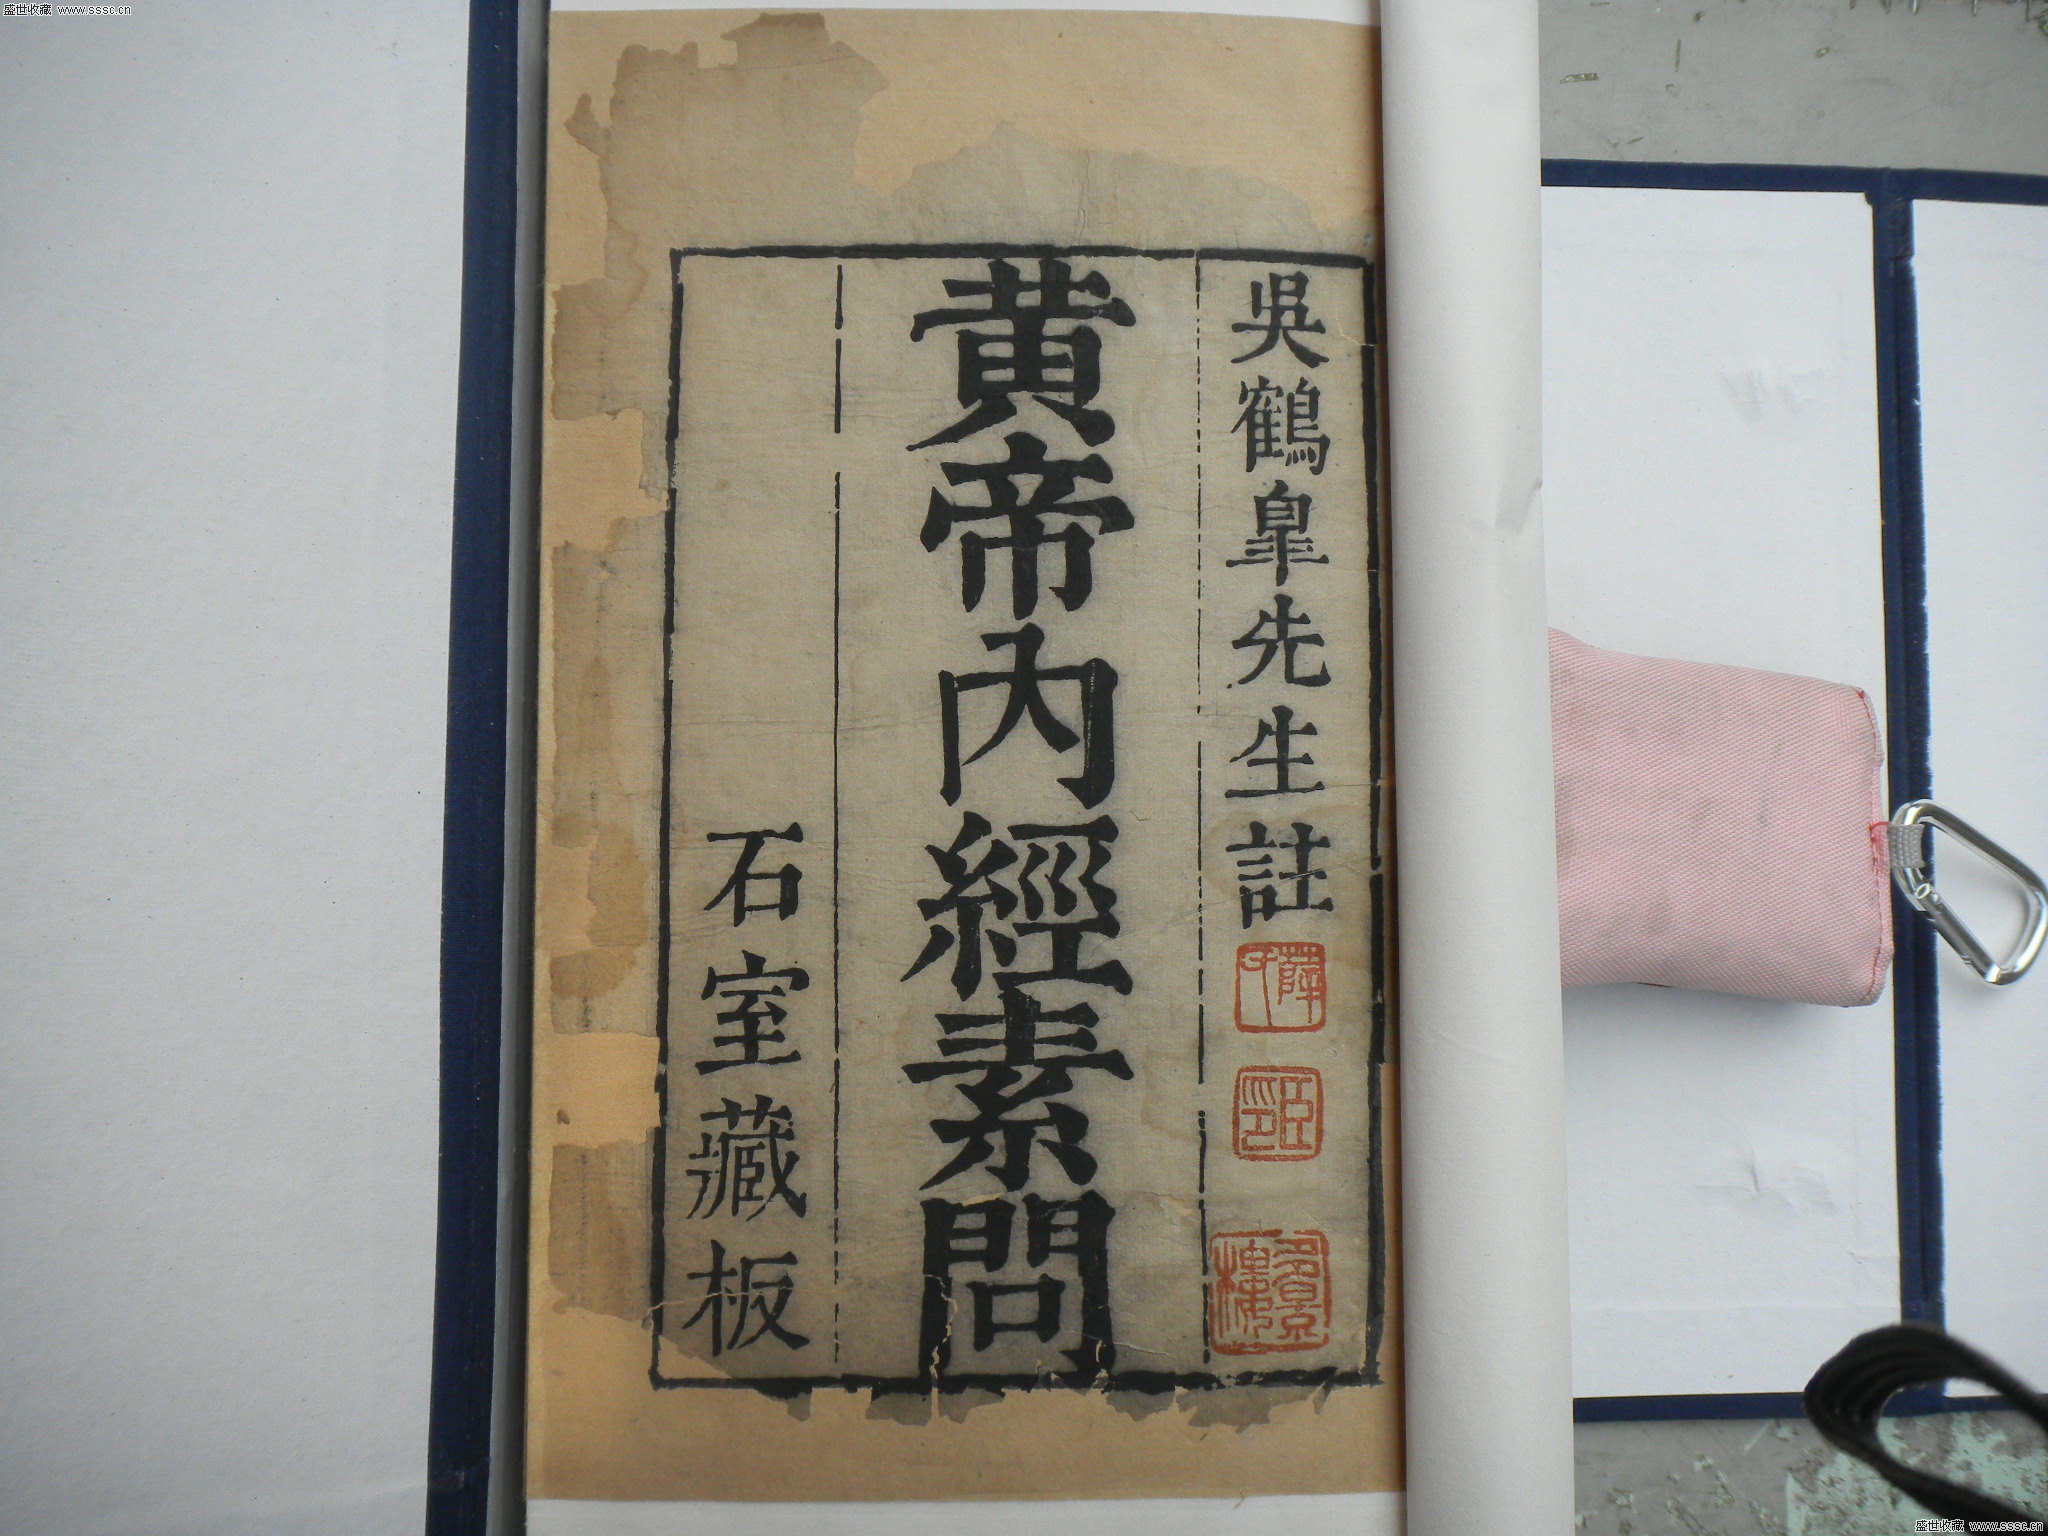 盛世收藏 www.sssc.cn
吳鶴皐先生註
黃帝內經素問
石室藏板
盛世收藏 www.sssc.cn